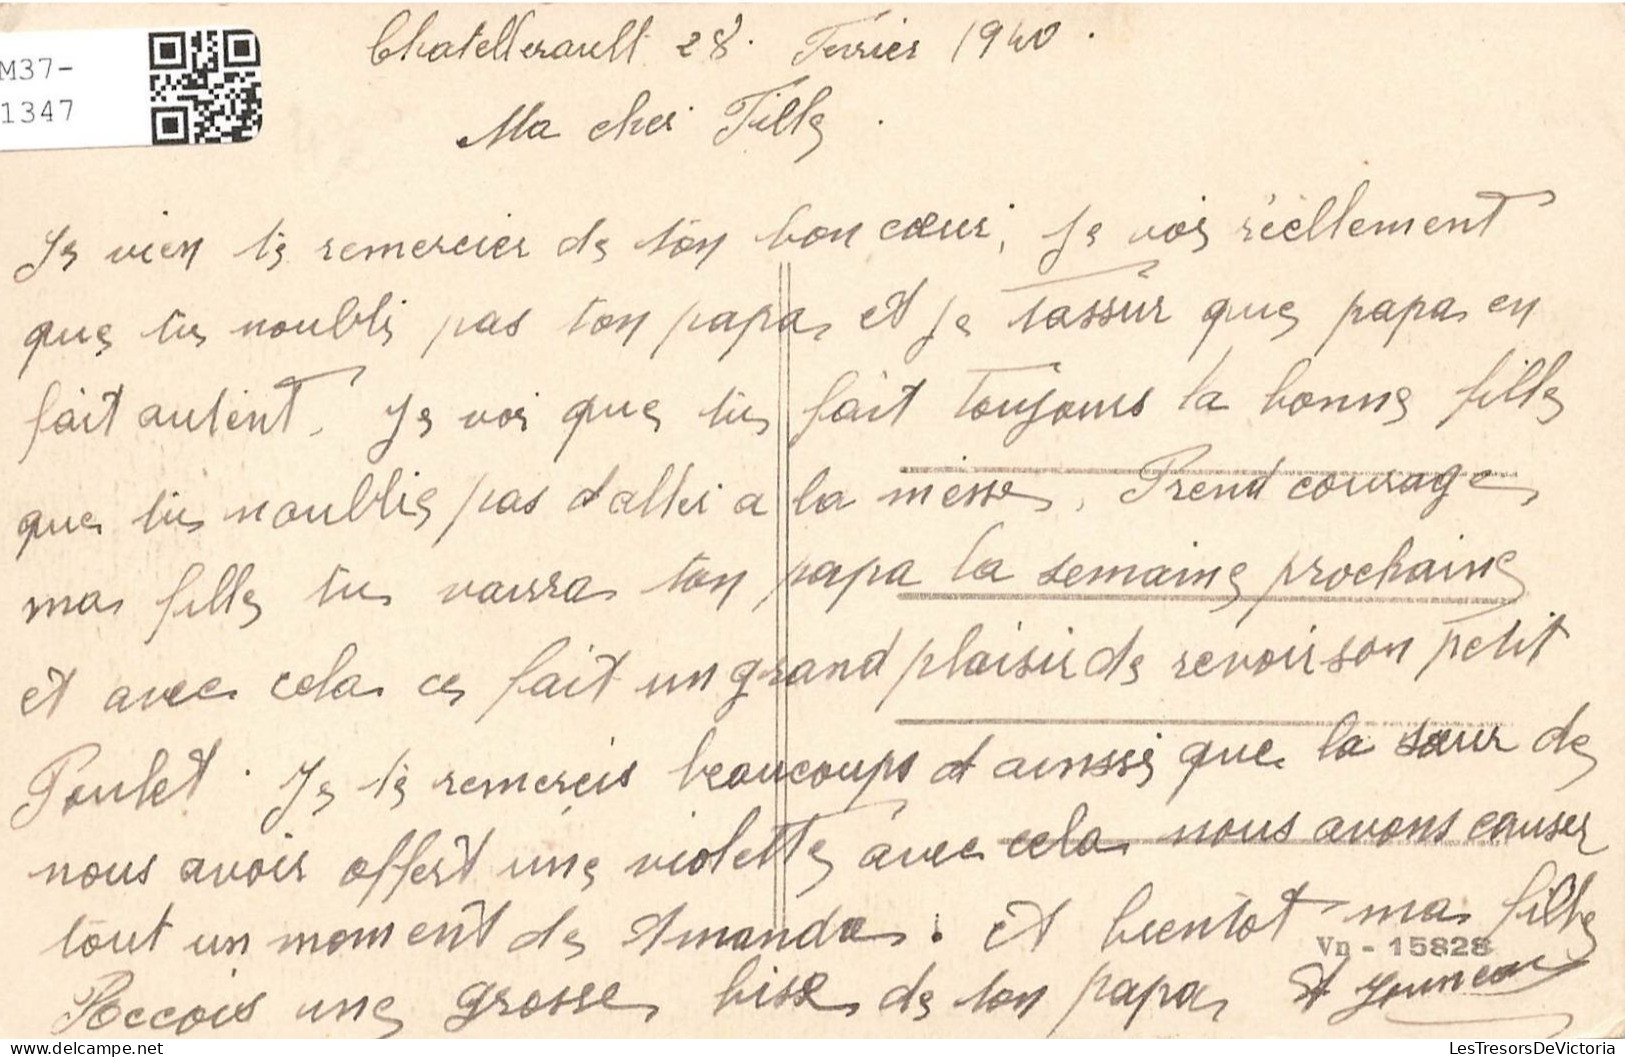 M37-
1347
Chatellerault 28. Fevrier 1940.
Ma cher Fille.
Je vien te remercier de ton bon cœur, Je vois réellement
que tu noublie pas ton papa et je tassur que papa en
fait autent. Je voi que tu fait toujours la bonne fille
que tu noublie pas d aller a la messe, Prend courage
ma fille tu vaura ton papa la semaine prochaine
et avec cela ce fait un grand plaisir de revoir son petit
Poulet. Je te remercis beaucoups et ainssi que la sœur de
nous avoir offert une violette avec cela nous avons causer
tout un moment de Amanda. Et bientot ma fille
Reccois une grosse bise de ton papa
Vn - 15828
LesTresorsDeVictoria